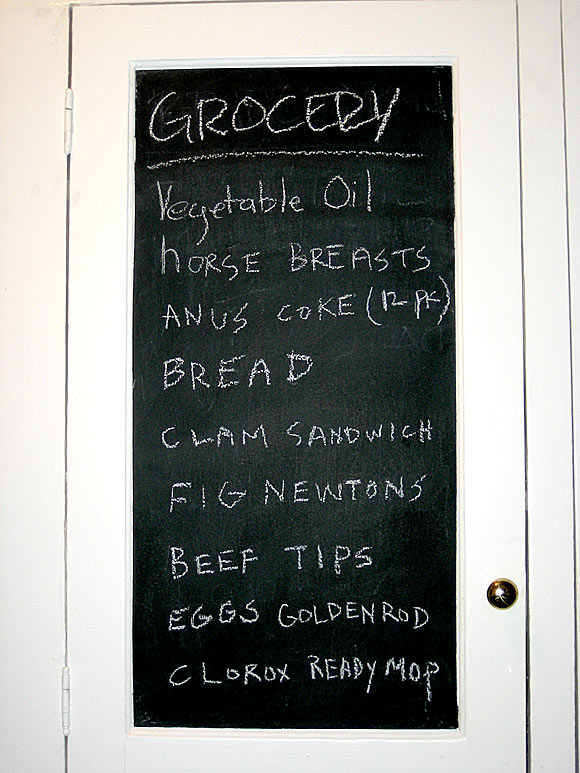 GROCERY
Vegetable Oil
hORSE BREASTS
ANUS COKE (12 PK)
BREAD
CLAM SANDWICH
FIG NEWTONS
BEEF TIPS
EGGS GOLDENROD
CLOROX READY MOP